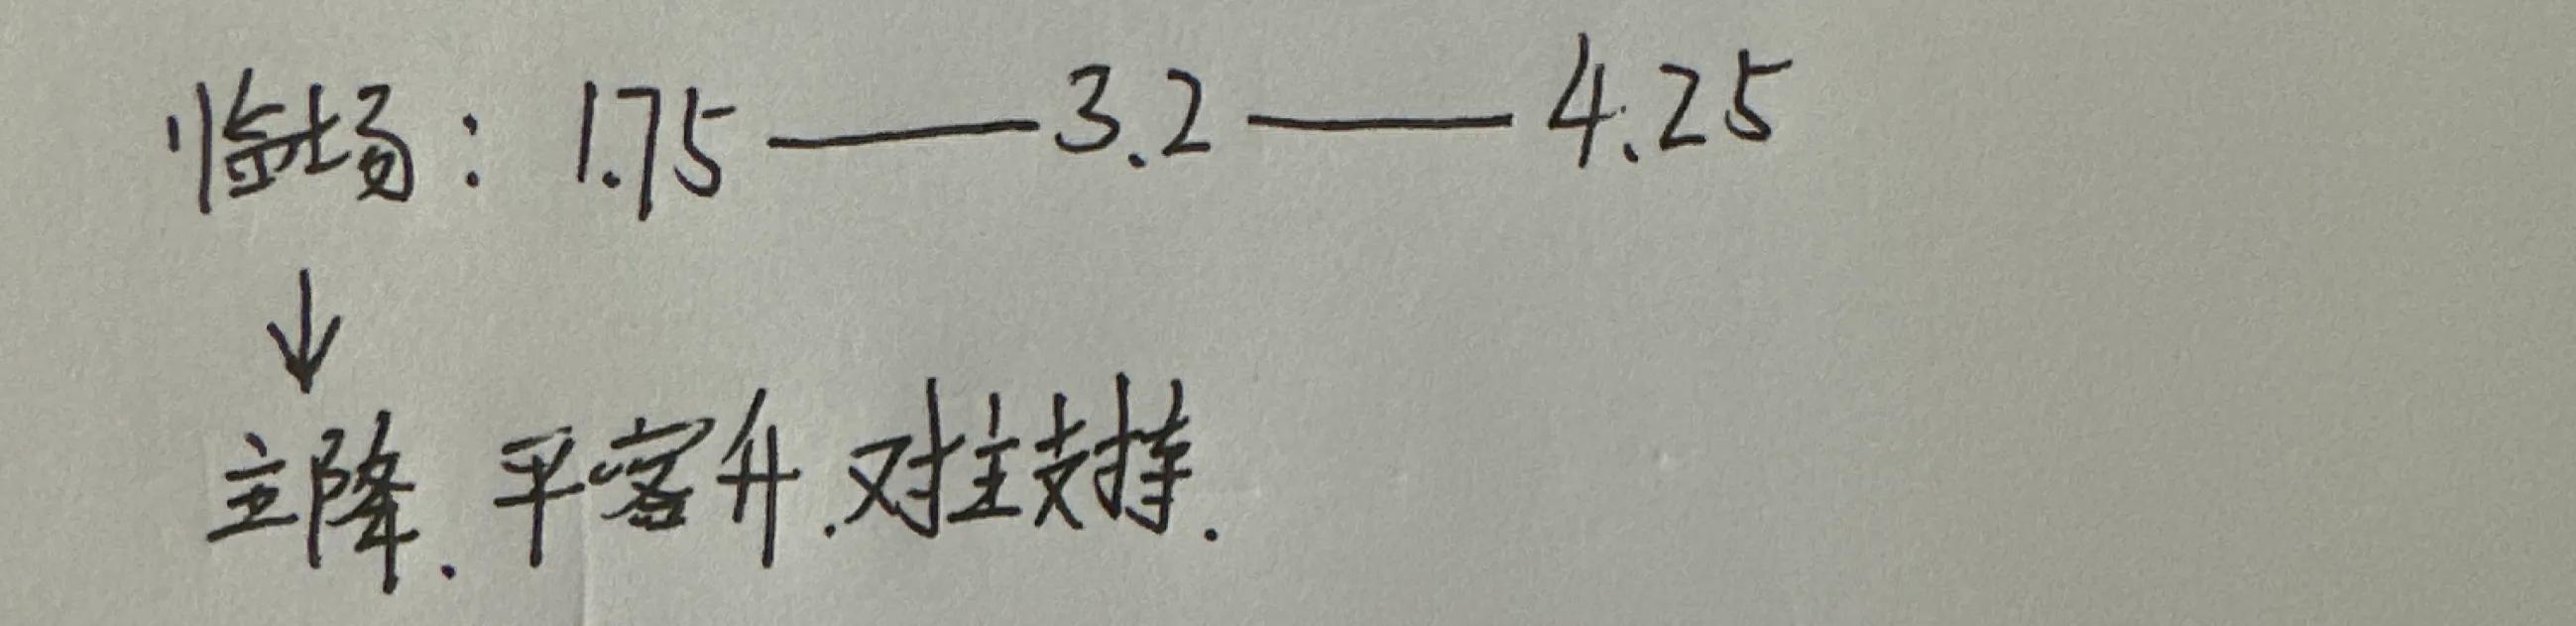 临场：1.75——3.2——4.25
↓
主降.平客升.对主支持.